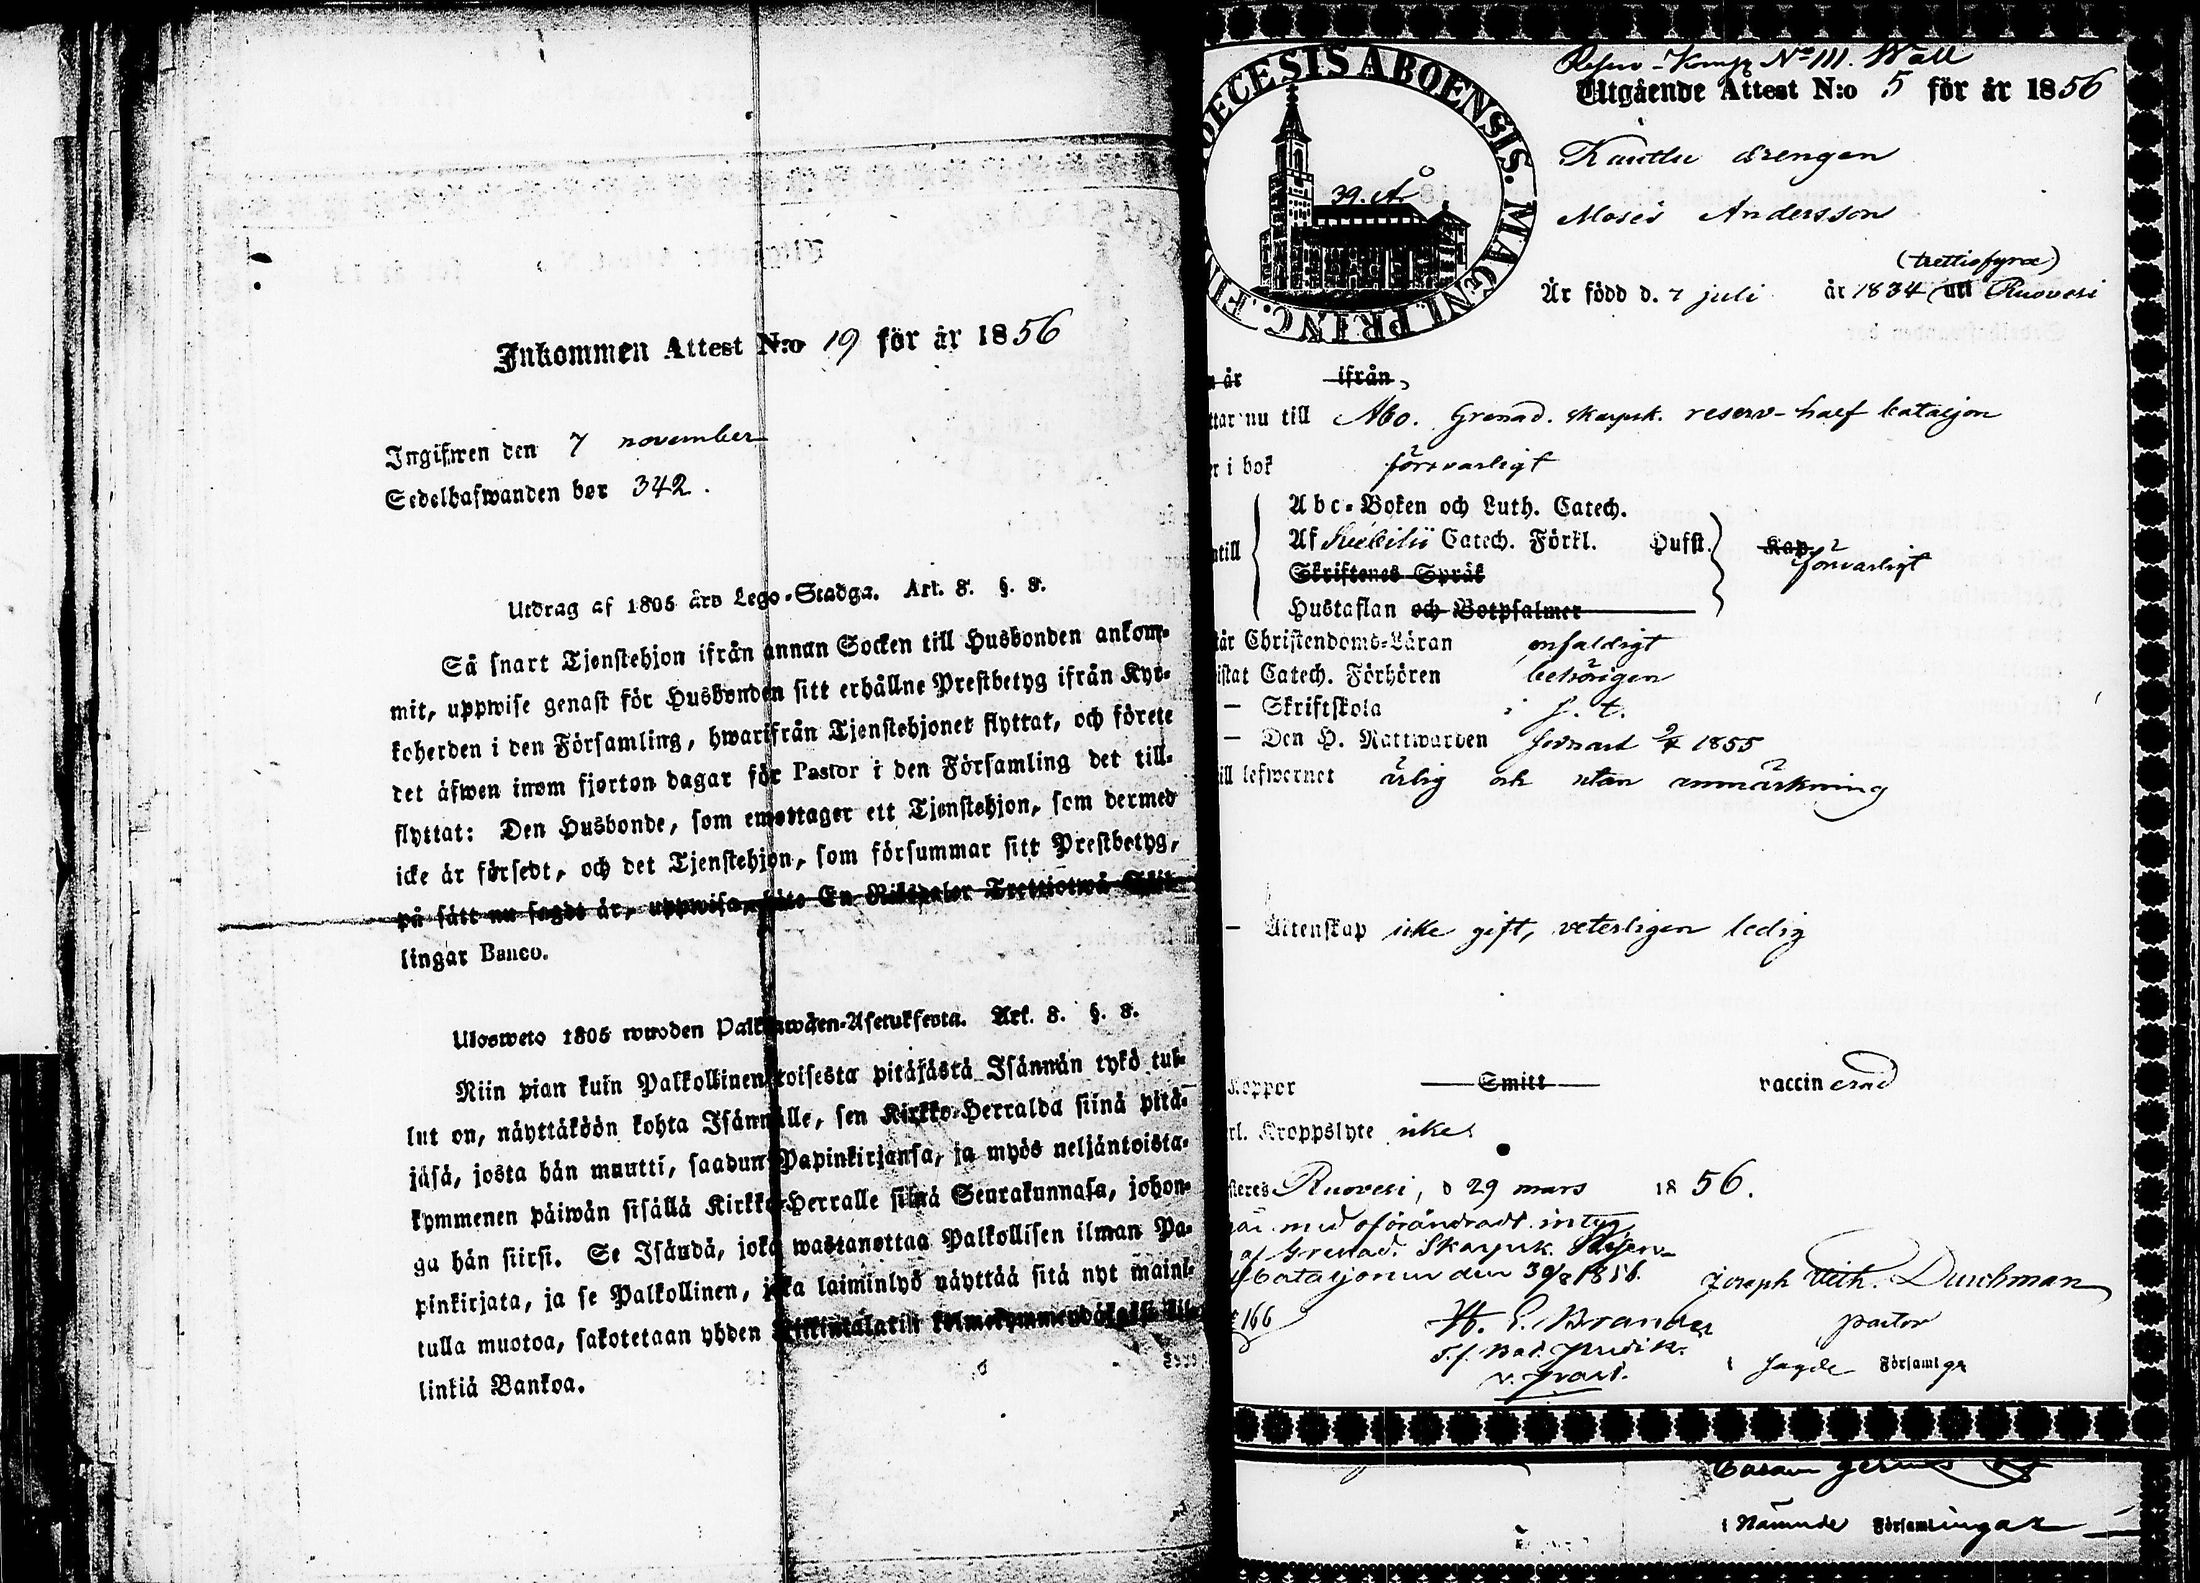 Inkommen Attest N:o 19 för år 1856
Ingifwen den 7 november
Sedelhafwanden bor 342.
Utdrag af 1805 års Lego-Stadga. Art. 8. §. 8.
Så snart Tjenstehjon ifrån annan Socken till Husbonden ankom-
mit, uppwise genast för Husbonden sitt erhållne Prestbetyg ifrån Kyr-
koherden i den Församling, hwarifrån Tjenstehjonet flyttat, och förete
det äfwen inom fjorton dagar för Pastor i den Församling det till-
flyttat: Den Husbonde, som emottager ett Tjenstehjon, som dermed
icke är försedt, och det Tjenstehjon, som försummar sitt Prestbetyg,
på sätt nu sagdt är, uppwisa, böte En Riksdaler Trettiotwå Skil-
lingar Banco.
Ulosweto 1805 wuoden Palkkawäen-Asetuksesta. Art. 8. §. 8.
Niin pian kuin Palkollinen toisesta pitäjästä Isännän tykö tul-
lut on, näyttäköön kohta Isännälle, sen Kirkko-Herralda siinä pitä-
jäsä, josta hän muutti, saadun Papinkirjansa, ja myös neljäntoista-
kymmenen päiwän sisällä Kirkko-Herralle siinä Seurakunnasa, johon-
ga hän siirsi. Se Isändä, joka wastanottaa Palkollisen ilman Pa-
pinkirjata, ja se Palkollinen, joka laiminlyö näyttää sitä nyt maini-
tulla muotoa, sakotetaan yhden Riikintalarin kolmekymmendäkaksi Kil-
linkiä Bankoa.
DIOECESIS ABOENSIS. MAGNI. PRINC. FIN
39. A
Reserv-Komp No III. Wäll
Utgående Attest N:o 5 för år 1856
drengen
Moses Andersson
(trettiofyra)
Är född d. 7 juli år 1834 uti Ruovesi
år ifrån,
ttar nu till Åbo. Grenad. skarpsk. reserv-half bataljon
r i bok försvarligt
Abc-Boken och Luth. Catech.
ntill Af Svebilii Catech. Förkl. Husst. Kap. försvarligt
Skriftenes Språk
Hustaflan och Botpsalmer
tår Christendoms-Läran enfaldigt
istat Catech. Förhören behörigen
— Skriftskola i s. t.
— Den H. Nattwarden 1855
ill lefwernet ärlig och utan anmärkning
— Äktenskap icke gift, veterligen ledig
Koppor Smitt vaccinerad
rl. Kroppslyte icke
steres Ruovesi, d 29 mars 1856.
med oförändradt intyg
af Grenad. Skarpsk. Reserv-
bataljonen den 1856.
166
Joseph Durchman
H. E. Brander
pastor
v. past.
i sagde Församlga
i Nämnde Församlingar